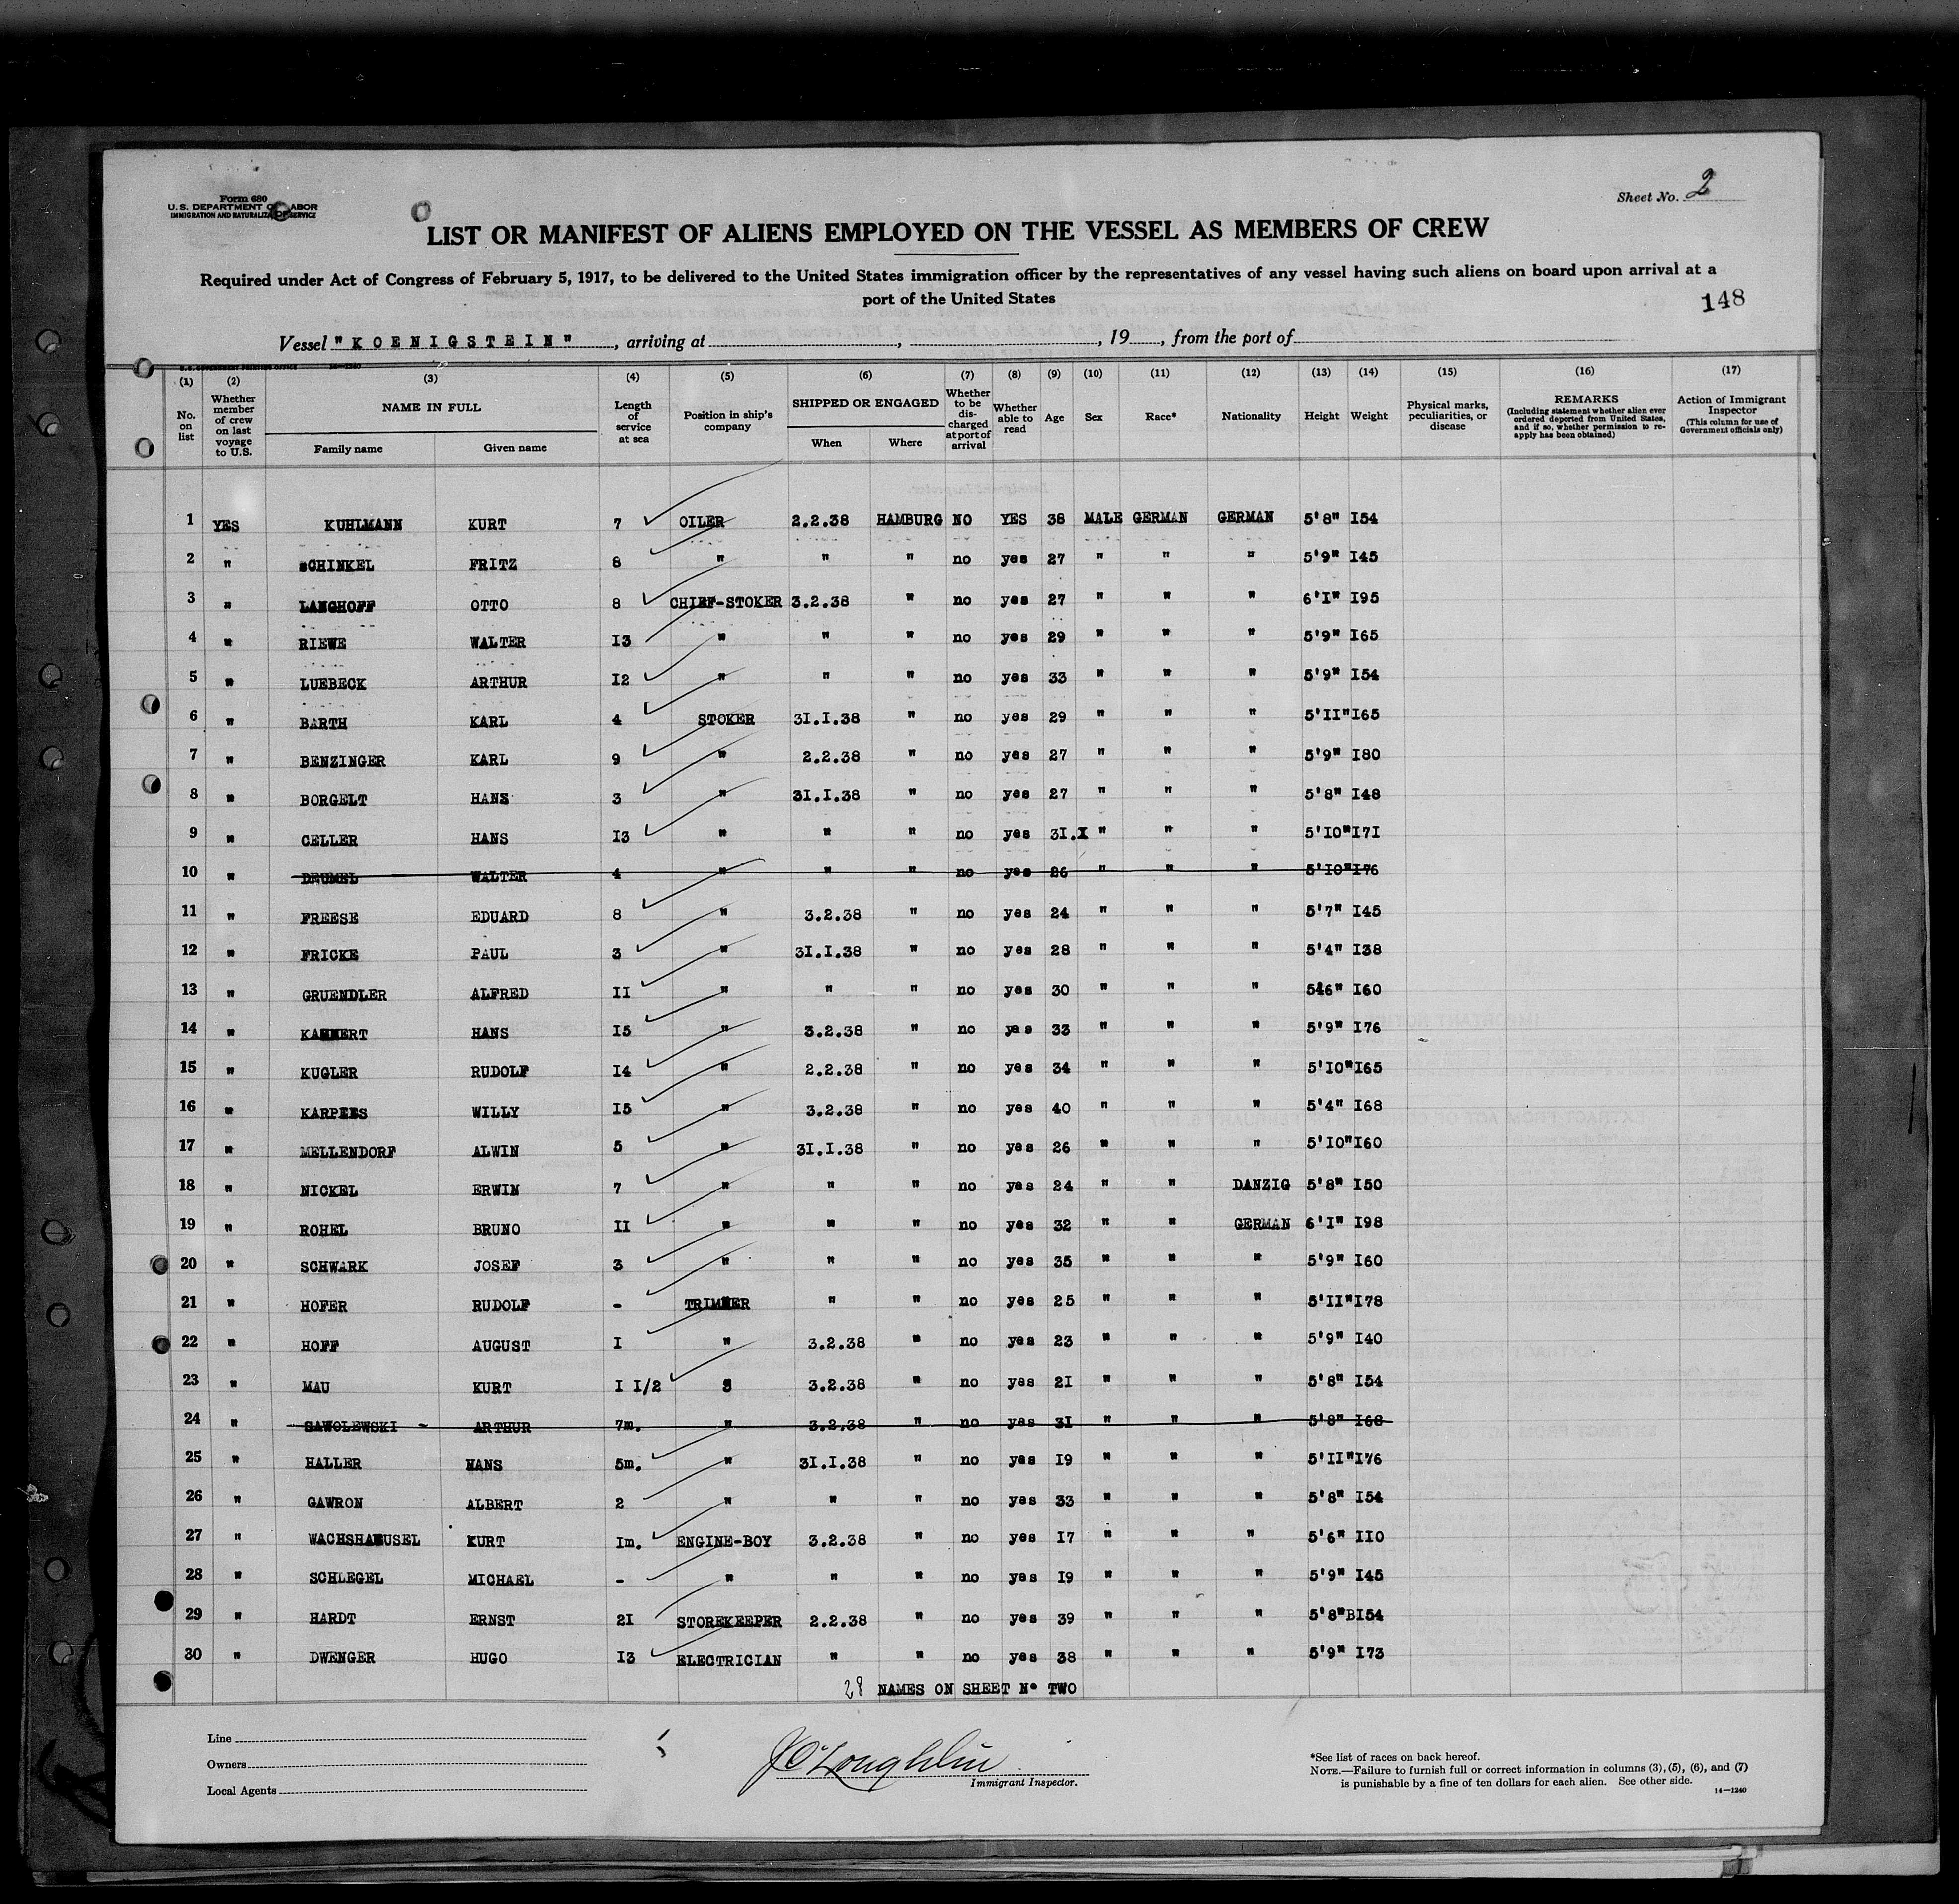 Form 680
U.S. DEPARTMENT OF LABOR
IMMIGRATION AND NATURALIZATION SERVICE
Sheet No. 2
LIST OR MANIFEST OF ALIENS EMPLOYED ON THE VESSEL AS MEMBERS OF CREW
Required under Act of Congress of February 5, 1917, to be delivered to the United States immigration officer by the representatives of any vessel having such aliens on board upon arrival at a
port of the United States
148
Vessel "KOENIGSTEIN", arriving at , , 19 , from the port of
U.S. GOVERNMENT PRINTING OFFICE 14—1240
(1) (2) (3) (4) (5) (6) (7) (8) (9) (10) (11) (12) (13) (14) (15) (16) (17)
No. on list
Whether member of crew on last voyage to U.S.
NAME IN FULL
Family name Given name
Length of service at sea
Position in ship's company
SHIPPED OR ENGAGED
When Where
Whether to be discharged at port of arrival
Whether able to read
Age
Sex
Race*
Nationality
Height
Weight
Physical marks, peculiarities, or disease
REMARKS
(Including statement whether alien ever ordered deported from United States, and if so, whether permission to reapply has been obtained)
Action of Immigrant Inspector
(This column for use of Government officials only)
1 YES KUHLMANN KURT 7 OILER 2.2.38 HAMBURG NO YES 38 MALE GERMAN GERMAN 5'8" I54
2 " sCHINKEL FRITZ 8 " " " no yes 27 " " " 5'9" I45
3 " LANGHOFF OTTO 8 CHIEF-STOKER 3.2.38 " no yes 27 " " " 6'I" I95
4 " RIEWE WALTER I3 " " " no yes 29 " " " 5'9" I65
5 " LUEBECK ARTHUR I2 " " " no yes 33 " " " 5'9" I54
6 " BARTH KARL 4 STOKER 3I.I.38 " no yes 29 " " " 5'II" I65
7 " BENZINGER KARL 9 " 2.2.38 " no yes 27 " " " 5'9" I80
8 " BORGELT HANS 3 " 3I.I.38 " no yes 27 " " " 5'8" I48
9 " CELLER HANS I3 " " " no yes 3I.I " " " 5'IO" I7I
10 " DEUMEL WALTER 4 " " " no yes 26 " " " 5'IO" I76
11 " FREESE EDUARD 8 " 3.2.38 " no yes 24 " " " 5'7" I45
12 " FRICKE PAUL 3 " 3I.I.38 " no yes 28 " " " 5'4" I38
13 " GRUENDLER ALFRED II " " " no yes 30 " " " 5'6" I60
14 " HANS I5 " 3.2.38 " no yes 33 " " " 5'9" I76
15 " KUGLER RUDOLF I4 " 2.2.38 " no yes 34 " " " 5'IO" I65
16 " WILLY I5 " 3.2.38 " no yes 40 " " " 5'4" I68
17 " MELLENDORF ALWIN 5 " 3I.I.38 " no yes 26 " " " 5'IO" I60
18 " NICKEL ERWIN 7 " " " no yes 24 " " DANZIG 5'8" I50
19 " ROHEL BRUNO II " " " no yes 32 " " GERMAN 6'I" I98
20 " SCHWARK JOSEF 3 " " " no yes 35 " " " 5'9" I60
21 " HOFER RUDOLF - TRIMMER " " no yes 25 " " " 5'II" I78
22 " HOFF AUGUST I " 3.2.38 " no yes 23 " " " 5'9" I40
23 " MAU KURT I I/2 " 3.2.38 " no yes 2I " " " 5'8" I54
24 " SAWOLEWSKI - ARTHUR 7m. " 3.2.38 " no yes 3I " " " 5'8" I68
25 " HALLER HANS 5m. " 3I.I.38 " no yes I9 " " " 5'II" I76
26 " GAWRON ALBERT 2 " " " no yes 33 " " " 5'8" I54
27 " KURT Im. ENGINE-BOY 3.2.38 " no yes I7 " " " 5'6" II0
28 " SCHLEGEL MICHAEL - " " " no yes I9 " " " 5'9" I45
29 " HARDT ERNST 2I STOREKEEPER 2.2.38 " no yes 39 " " " 5'8"BI54
30 " DWENGER HUGO I3 ELECTRICIAN " " no yes 38 " " " 5'9" I73
28 NAMES ON SHEET N° TWO
Line
Owners
Local Agents
J O'Loughlin
Immigrant Inspector.
*See list of races on back hereof.
NOTE.—Failure to furnish full or correct information in columns (3), (5), (6), and (7)
is punishable by a fine of ten dollars for each alien. See other side.
14—1240